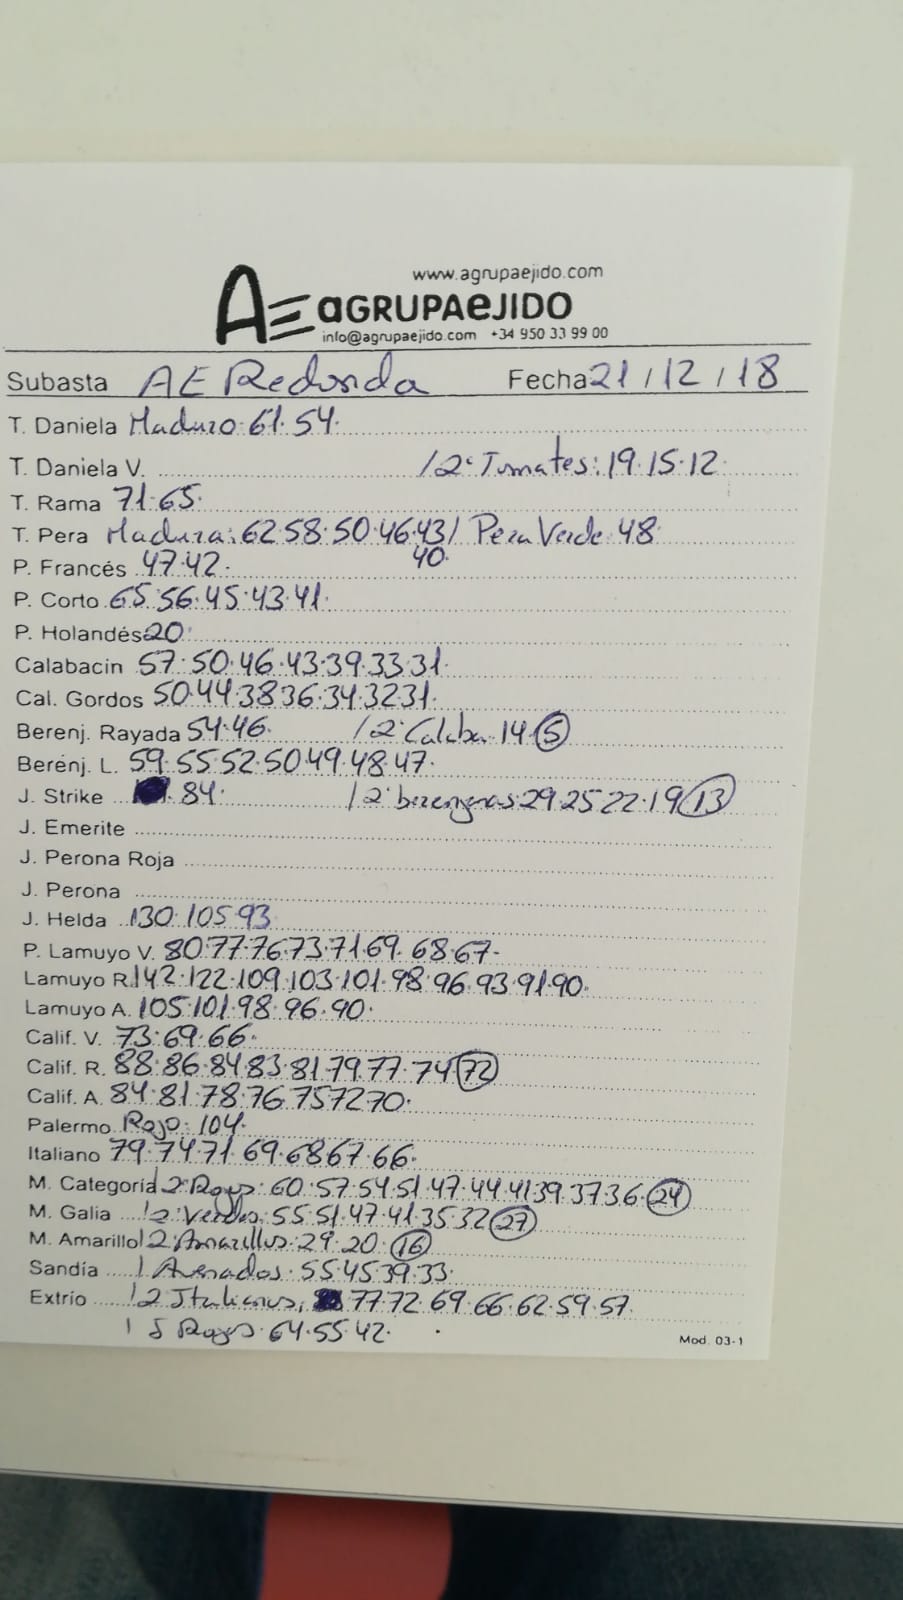 www.agrupaejido.com
AE aGRUPAeJIDO
info@agrupaejido.com +34 950 33 99 00
Subasta AE Redonda Fecha 21/12/18
T. Daniela Maduro. 61. 54.
T. Daniela V. / 2ª Tomates: 19. 15. 12
T. Rama 71. 65.
T. Pera Madura: 62. 58. 50. 46. 43 / Pera Verde 48
40.
P. Francés 47. 42.
P. Corto 65. 56. 45. 43. 41.
P. Holandés 20.
Calabacin 57. 50. 46. 43. 39. 33. 31.
Cal. Gordos 50. 44. 38 36. 34. 32 31.
Berenj. Rayada 54. 46. / 2ª Calaba. 14. 5
Berenj. L. 59. 55. 52. 50 49. 48. 47.
J. Strike 84. / 2ª berengenas. 29. 25. 22. 19 13
J. Emerite
J. Perona Roja
J. Perona
J. Helda 130. 105. 93
P. Lamuyo V. 80. 77. 76. 73. 71. 69. 68. 67.
Lamuyo R. 142. 122. 109. 103. 101. 98. 96. 93. 91. 90.
Lamuyo A. 105. 101. 98. 96. 90.
Calif. V. 73. 69. 66.
Calif. R. 88. 86. 84. 83. 81. 79. 77. 74 72
Calif. A. 84. 81. 78. 76. 75 72 70.
Palermo Rojo: 104.
Italiano 79. 74 71. 69. 68 67. 66.
M. Categoría 2ª Rojos: 60. 57. 54. 51. 47. 44. 41 39. 37. 36. 24
M. Galia / 2ª Verdes. 55. 51. 47. 41. 35. 32 27
M. Amarillo / 2ª Amarillos. 29. 20. 16
Sandía / Asurados. 55. 45. 39. 33.
Extrio / 2 Italianos, 77 72. 69. 66. 62. 59. 57.
/ Rojos. 64. 55. 42.
Mod. 03-1